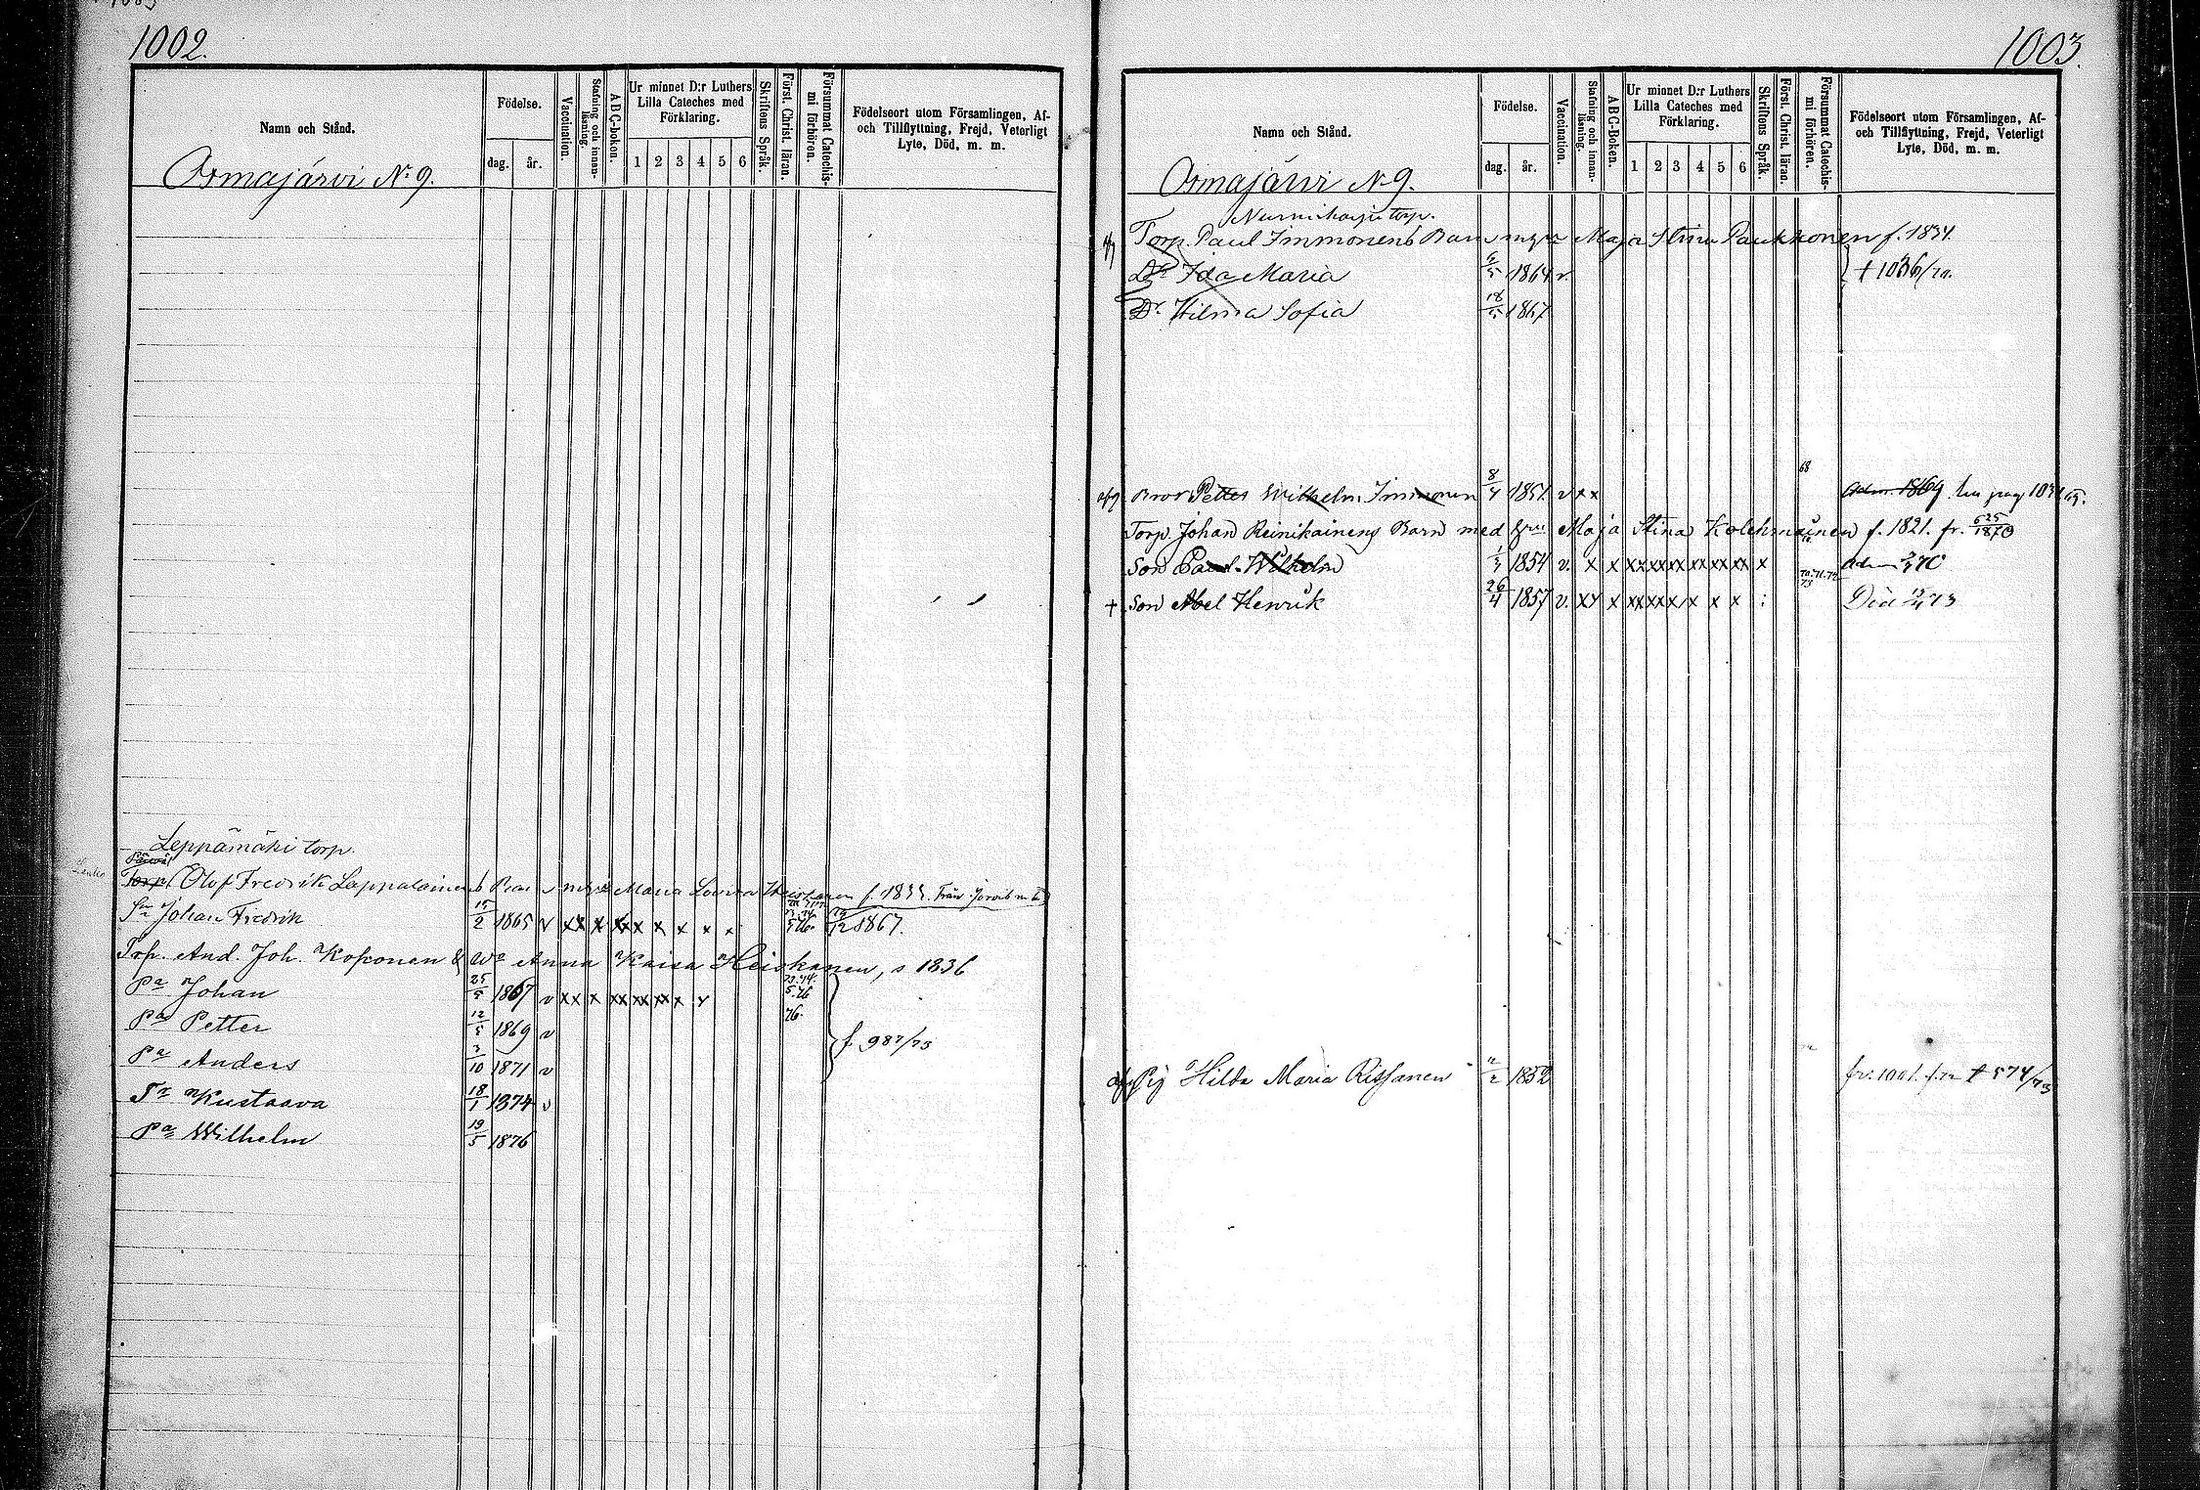 1002.
Namn och Stånd.
Födelse.
dag.
år.
Vaccination.
Stafning och innan-läsning.
ABC-boken.
Ur minnet D:r Luthers Lilla Cateches med Förklaring.
1 2 3 4 5 6
Skriftens Språk.
Först. Christ. läran.
Försummat Catechis-mi förhören.
Födelseort utom Församlingen, Af- och Tillflyttning, Frejd, Veterligt Lyte, Död, m. m.
Osmajärvi No 9.
Leppämäki torp.
Torp. Olof Fredrik Lappalainens Barn Maria Lovisa f. 1833. Från
Sn Johan Fredrik 15/2 1865 v xx x xx x x x x 1867.
Trp. And. Joh. Koponen & Wa Anna Kaisa Heiskanen, s 1836
Pa Johan 25/5 1867 v xx x xx xx xx x x
Pa Petter 12/5 1869 v
f. 987/73
Pa Anders 3/10 1871 v
Tr Kustaava 18/1 1874 v
Pa Wilhelm 19/5 1876
1003.
Namn och Stånd.
Födelse.
dag.
år.
Vaccination.
Stafning och innan-läsning.
ABC-Boken.
Ur minnet D:r Luthers Lilla Cateches med Förklaring.
1 2 3 4 5 6
Skriftens Språk.
Först. Christ. läran.
Försummat Catechis-mi förhören.
Födelseort utom Församlingen, Af- och Tillflyttning, Frejd, Veterligt Lyte, Död, m. m.
Osmajärvi No 9.
Nurmiharju torp.
Torp. Paul Immonens Barn Maja Stina Paukkonen f. 1834.
Dr Ida Maria 1864 v.
Dr Hilma Sofia 18/5 1867
68
Bror Petter Wilhelm Immonen 8/4 1851 v x x Adm. 1869
Torp. Johan Reinikainens Barn med Maja Stina Kolehmainen f. 1821. fr. 525/1870
Son Paul Wilhelm 1/3 1854 v. x x xx xx xx xx xx x x Adm 70
+ Son Abel Henrik 26/4 1857 v. xx x xx xx x x x x Död 73
Pig Hilda Maria Rissanen 1852 fr. 1001. 574/73